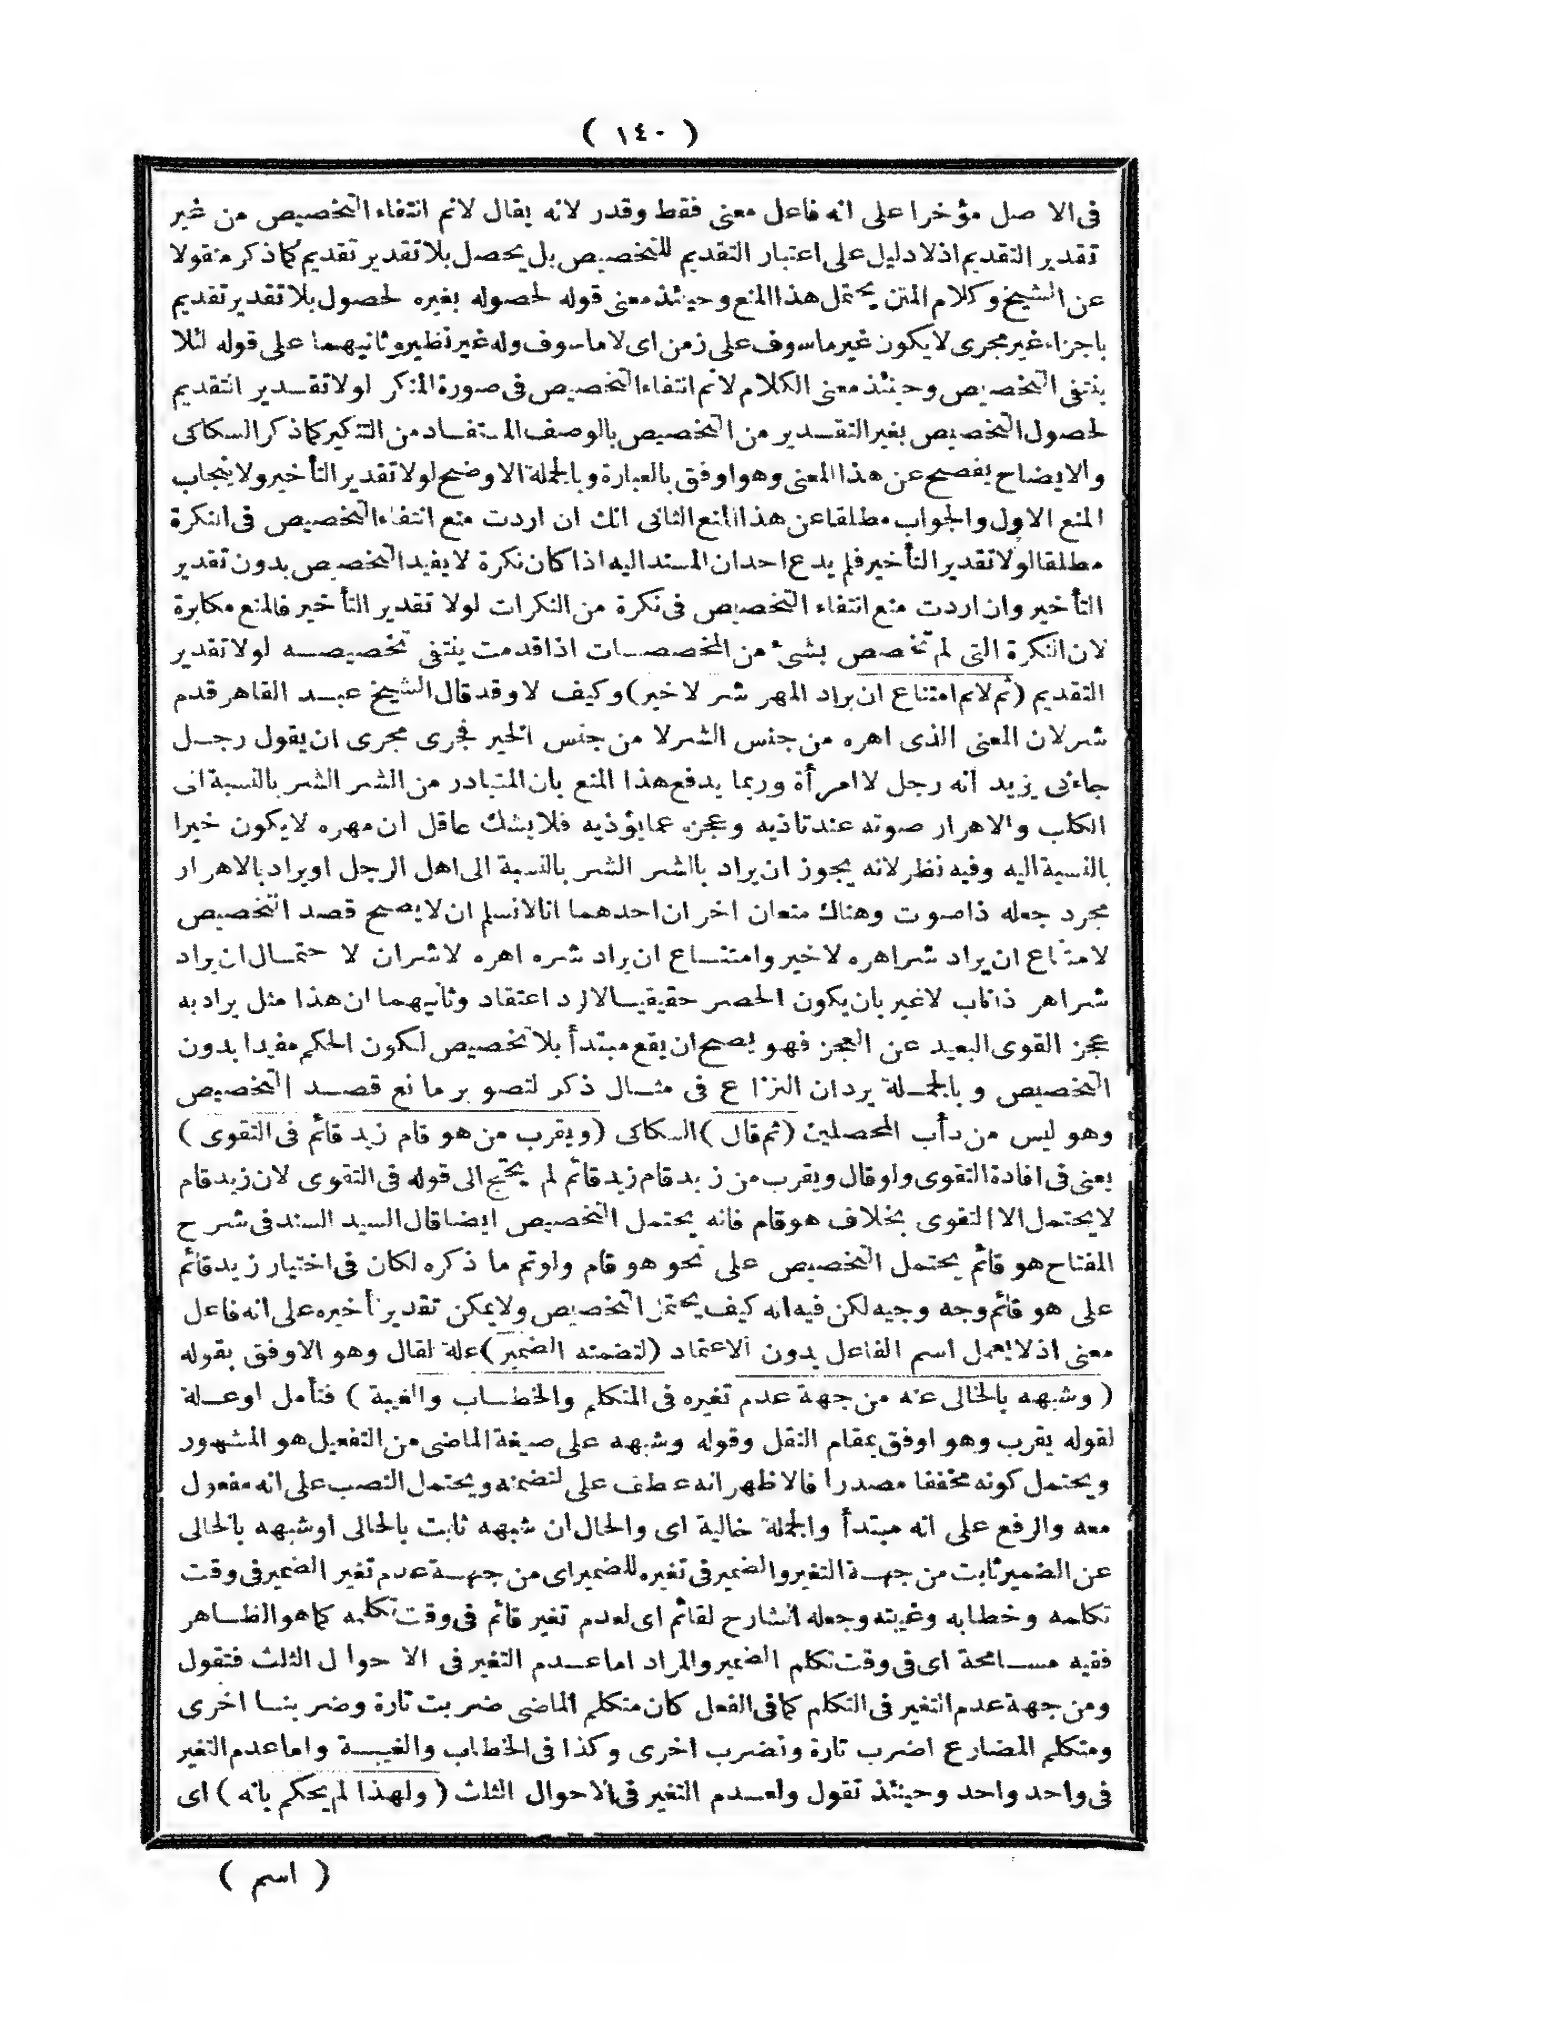 ( ١٤٠ )
فى الاصل مؤخرا على انه فاعل معنى فقط وقدر لانه يقال لانم انتفاء التخصيص من غير
تقدير التقديم اذلا دليل على اعتبار التقديم للتخصيص بل يحصل بلا تقدير تقديم كما ذكر منقولا
عن الشيخ وكلام المتن يحتمل هذا المنع وحينئذ معنى قوله لحصوله بغيره لحصول بلا تقدير تقديم
باجزاء غير مجرى لا يكون غير ماسوف على زمن اى لا ماسوف وله غير نظيره وثانيهما على قوله لئلا
ينتفى التخصيص وحينئذ معنى الكلام لانم انتفاء التخصيص فى صورة المنكر لولا تقدير التقديم
لحصول التخصيص بغير التقدير من التخصيص بالوصف المستفاد من التنكير كما ذكر السكاكى
والايضاح يفصح عن هذا المعنى وهو اوفق بالعبارة وبالجملة الاوضح لولا تقدير التأخير ولا ينجاب
المنع الاول والجواب مطلقا عن هذا المنع الثانى انك ان اردت منع انتفاء التخصيص فى النكرة
مطلقا لولا تقدير التأخير فلم يدع احد ان المسند اليه اذا كان نكرة لا يفيد التخصيص بدون تقدير
التأخير وان اردت منع انتفاء التخصيص فى نكرة من النكرات لولا تقدير التأخير فالمنع مكابرة
لان النكرة التى لم تخصص بشئ من المخصصات اذا قدمت ينتفى تخصيصه لولا تقدير
التقديم (ثم لانم امتناع ان يراد المهر شر لا خير) وكيف لا وقد قال الشيخ عبد القاهر قدم
شر لان المعنى الذى اهره من جنس الشر لا من جنس الخير فجرى مجرى ان يقول رجل
جاءنى يزيد انه رجل لا امرأة وربما يدفع هذا المنع بان المتبادر من الشر الشر بالنسبة الى
الكلب والاهرار صوته عند تاذيه وعجزه عما يؤذيه فلا يشك عاقل ان مهره لا يكون خيرا
بالنسبة اليه وفيه نظر لانه يجوز ان يراد بالشر الشر بالنسبة الى اهل الرجل او يراد بالاهرار
مجرد جعله ذا صوت وهناك منعان اخر ان احدهما انا لا نسلم ان لا يصح قصد التخصيص
لامتناع ان يراد شر اهره لا خير وامتناع ان يراد شره اهره لا شران لا حتمال ان يراد
شر اهر ذا ناب لا غير بان يكون الحصر حقيقيا لا لرد اعتقاد وثانيهما ان هذا مثل يراد به
عجز القوى البعيد عن العجز فهو يصح ان يقع مبتدأ بلا تخصيص لكون الحكم مفيدا بدون
التخصيص وبالجملة يرد ان النزاع فى مثال ذكر لتصوير مانع قصد التخصيص
وهو ليس من دأب المحصلين (ثم قال) السكاكى (ويقرب من هو قام زيد قائم فى التقوى)
يعنى فى افادة التقوى ولو قال ويقرب من زيد قام زيد قائم لم يحتج الى قوله فى التقوى لان زيد قام
لا يحتمل الا التقوى بخلاف هو قام فانه يحتمل التخصيص ايضا قال السيد السند فى شرح
المفتاح هو قائم يحتمل التخصيص على نحو هو قام ولو تم ما ذكره لكان فى اختيار زيد قائم
على هو قائم وجه وجيه لكن فيه انه كيف يحتمل التخصيص ولا يمكن تقدير تأخيره على انه فاعل
معنى اذ لا يعمل اسم الفاعل بدون الاعتماد (لتضمنه الضمير) علة لقال وهو الاوفق بقوله
( وشبهه بالخالى عنه من جهة عدم تغيره فى المتكلم والخطاب والغيبة ) فتأمل او علة
لقوله يقرب وهو اوفق بمقام النقل وقوله وشبهه على صيغة الماضى من التفعيل هو المشهور
ويحتمل كونه مخففا مصدرا فالاظهر انه عطف على لتضمنه ويحتمل النصب على انه مفعول
معه والرفع على انه مبتدأ والجملة خالية اى والحال ان شبهه ثابت بالخالى او شبهه بالخالى
عن الضمير ثابت من جهة التغير والضمير فى تغيره للضمير اى من جهة عدم تغير الضمير فى وقت
تكلمه وخطابه وغيبته وجعله الشارح لقائم اى لعدم تغير قائم فى وقت تكلمه كما هو الظاهر
ففيه مسامحة اى فى وقت تكلم الضمير والمراد اما عدم التغير فى الاحوال الثلث فتقول
ومن جهة عدم التغير فى التكلم كما فى الفعل كان متكلم الماضى ضربت تارة وضربنا اخرى
ومتكلم المضارع اضرب تارة ونضرب اخرى وكذا فى الخطاب والغيبة واما عدم التغير
فى واحد واحد وحينئذ تقول ولعدم التغير فى الاحوال الثلث ( ولهذا لم يحكم بانه ) اى
( اسم )